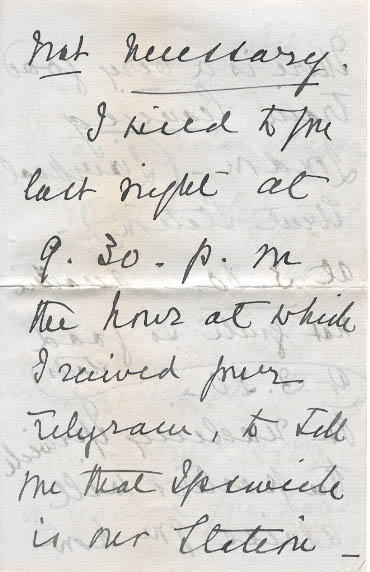 not necessary.
I wired to you
last night at
9.30 - p. m
the hour at which
I received your
Telegram, to tell
me that Ipswich
is our Station -